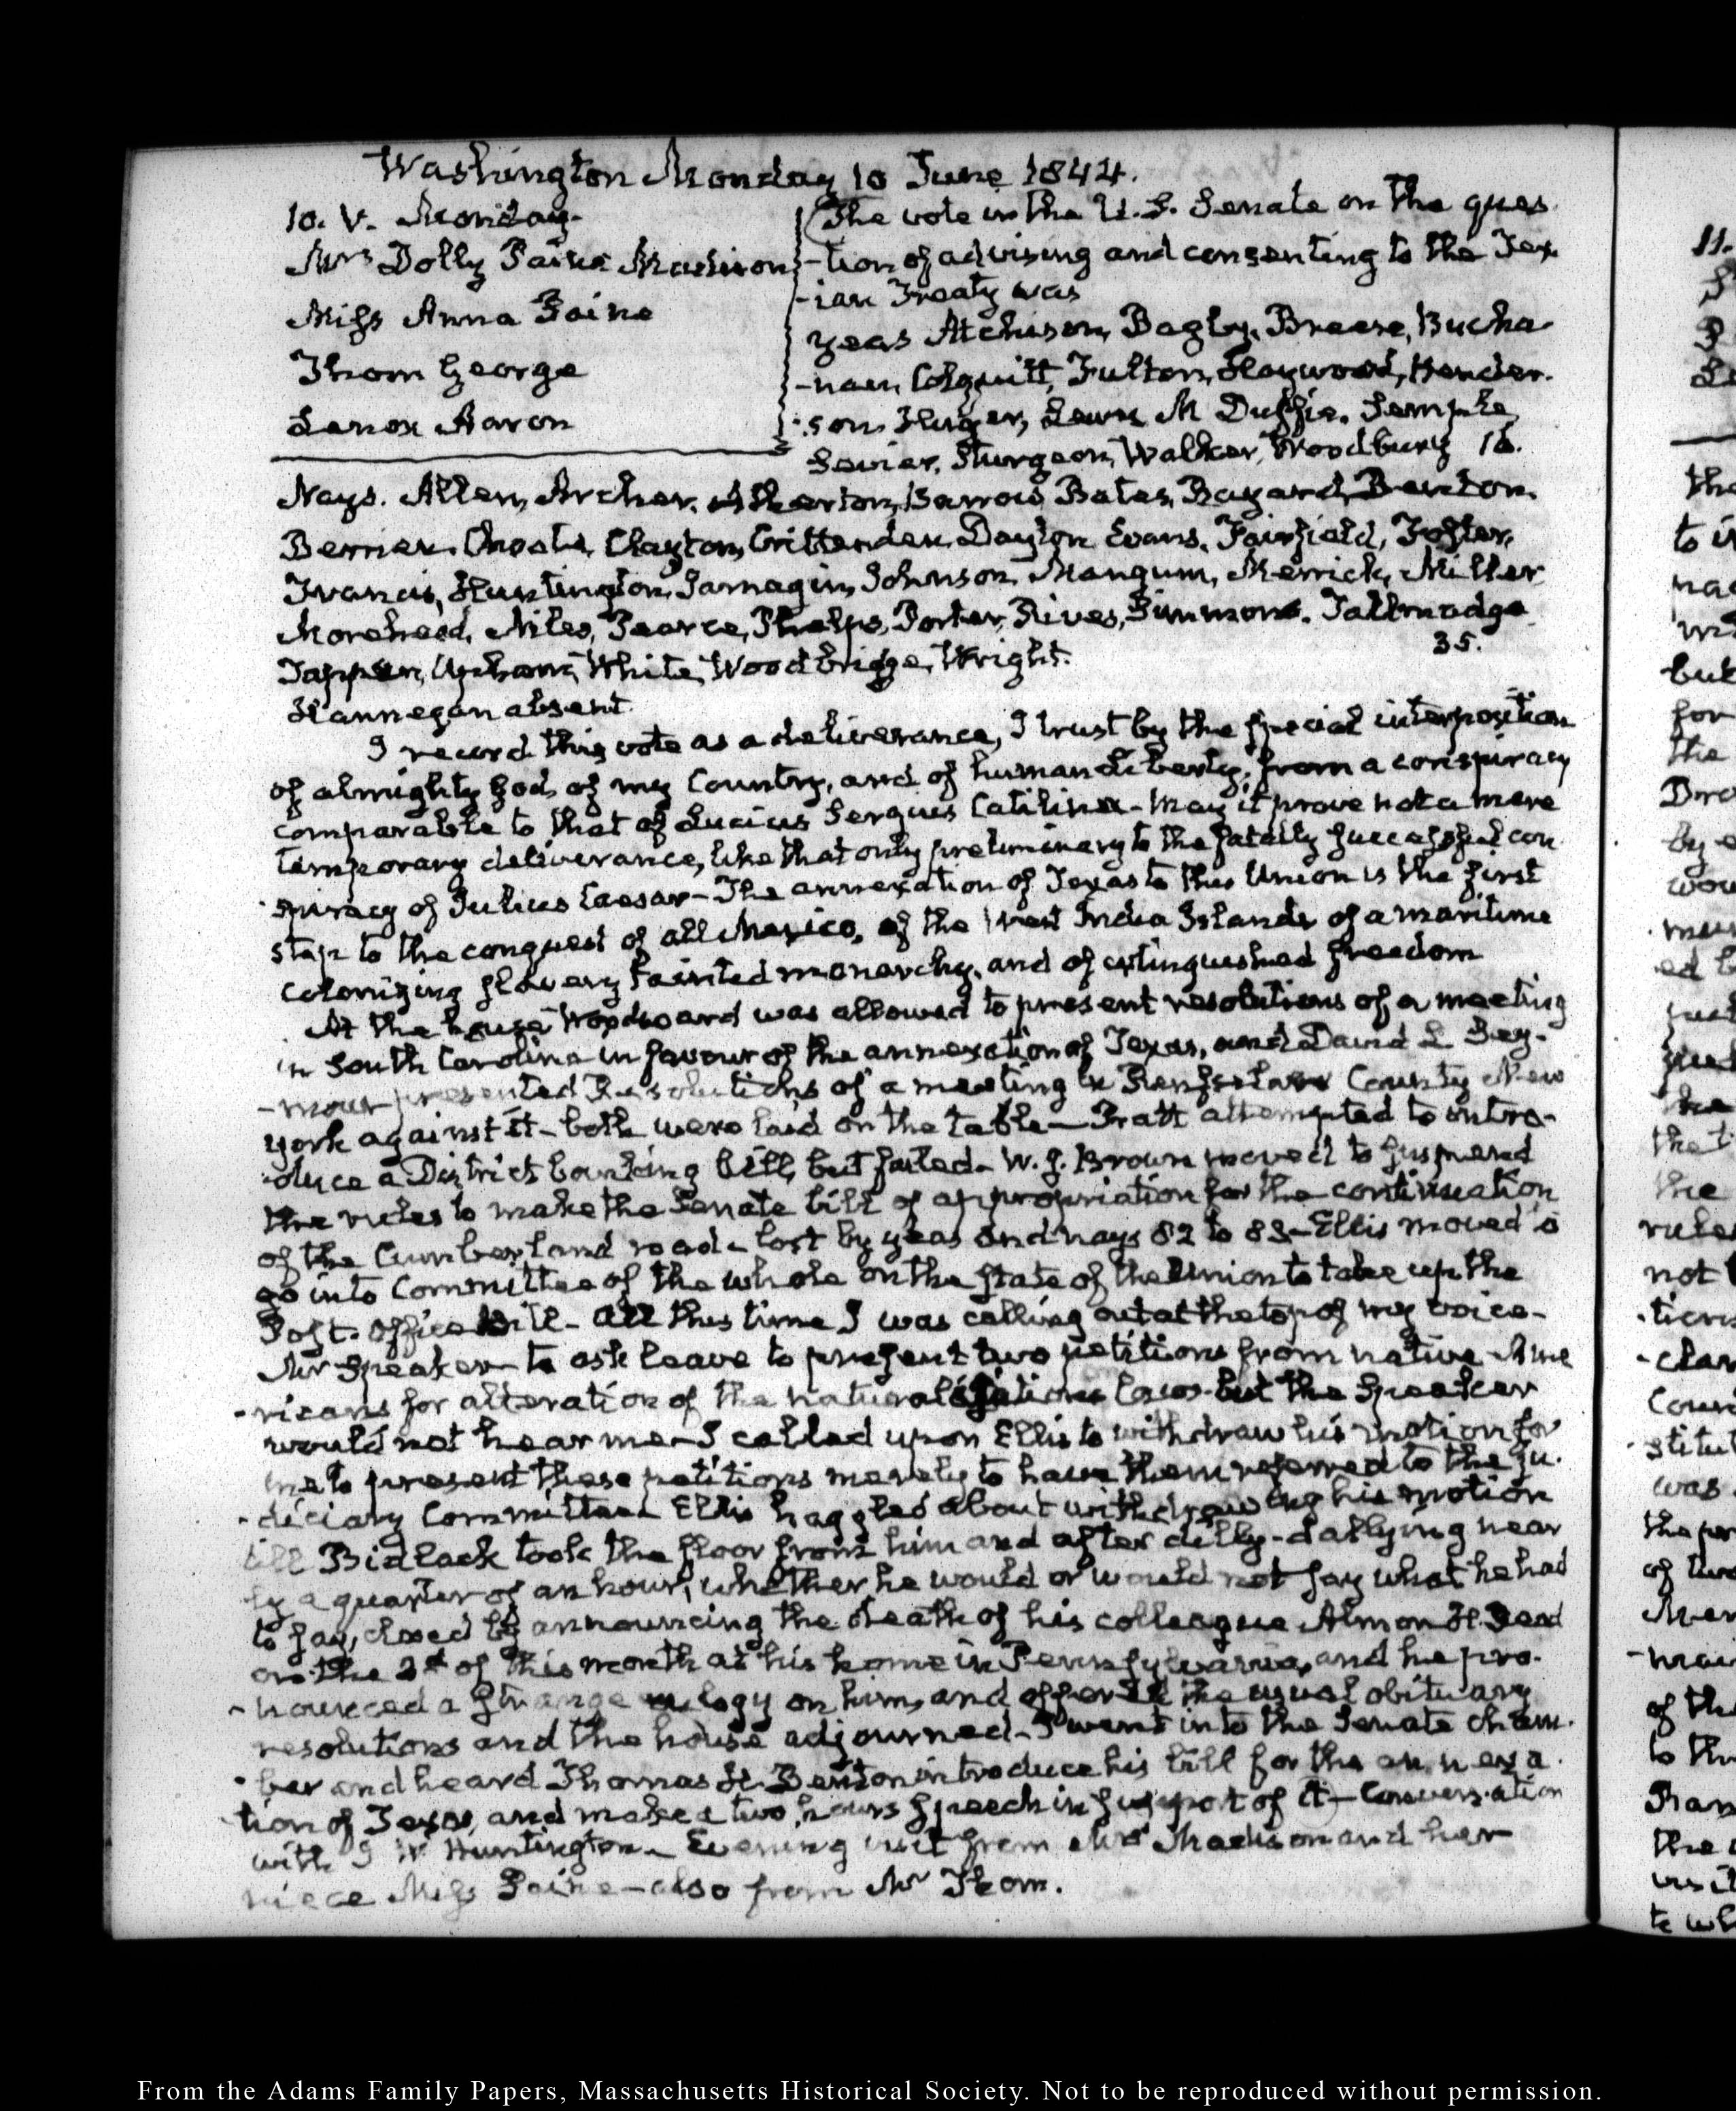 Washington Monday 10 June 1844.
10. V. Monday.
Mrs Dolly Paine Madison
Miss Anna Paine
Thom George
Lenox Aaron
The vote in the U.S. Senate on the ques
-tion of advising and consenting to the Tex
-ian Treaty was
yeas Atchison, Bagby, Breese, Bucha
-nan, Colquitt, Fulton, Haywood, Hender.
-son. Huger, Lewis, McDuffie, Semple,
Sevier, Sturgeon, Walker, Woodbury 16.
Nays. Allen, Archer, Atherton, Barrow, Bates, Bayard, Benton.
Berrien. Choate, Clayton, Crittenden Dayton Evans. Fairfield, Foster,
Francis, Huntington, Jarnagin, Johnson, Mangum, Merrick, Miller
Morehead, Niles, Pearce, Phelps, Porter, Rives, Simmons. Tallmadge
Tappan, Upham, White, Woodbridge, Wright. 35.
Hannegan absent.
I record this vote as a deliverance, I trust by the special interposition
of almighty God, of my Country, and of human Liberty, from a conspiracy
comparable to that of Lucius Sergius Catilina - May it prove not a mere
temporary deliverance, like that only preliminary to the fatally successful con
spiracy of Julius Caesar - The annexation of Texas to this Union is the first
step to the conquest of all Mexico, of the West India Islands of a maritime
colonizing slavery tainted monarchy, and of extinguished freedom
At the house Woodward was allowed to present resolutions of a meeting
in South Carolina in favour of the annexation of Texas, and David L Sey-
-mour presented Resolutions of a meeting in Rensselaer County New
york against it - both were laid on the table - Pratt attempted to intro-
-duce a District banking bill, but failed - W. J. Brown moved to suspend
the rules to make the Senate bill of appropriation for the continuation
of the Cumberland road - lost by yeas and nays 82 to 83 - Ellis moved to
go into Committee of the whole on the state of the Union to take up the
Post-office bill - All this time I was calling out at the top of my voice -
Mr Speaker - to ask leave to present two petitions from native Ame
-ricans for alteration of the naturalization laws - but the Speaker
would not hear me - I called upon Ellis to withdraw his motion for
me to present these petitions merely to have them referred to the Ju.
-diciary Committee - Ellis haggled about withdrawing his motion
till Bidlack took the floor from him and after dilly-dallying near
ly a quarter of an hour, whether he would or would not say what he had
to say, closed by announcing the death of his colleague Almon H. Read
on the 3d of this month at his home in Pennsylvania, and he pro.
-nounced a strange eulogy on him, and offered the usual obituary
resolutions and the house adjourned - I went into the Senate cham.
-ber and heard Thomas H. Benton introduce his bill for the annexa.
tion of Texas, and make a two hours speech in support of it - Conversation
with J W Huntington - Evening visit from Mrs Madison and her
niece Miss Paine - also from Mr Thom.
11.
From the Adams Family Papers, Massachusetts Historical Society. Not to be reproduced without permission.